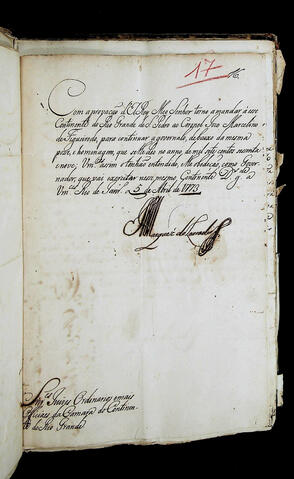 17
Com aprovação d'ElRey Meu Senhor torna a mandar á esse
Continente do Rio Grande de S. Pedro ao Coronel Joze Marcelino
de Figueiredo, para continuar a governalo, debaxo da mesma
posse, e homenagem, que se lhe deo no anno de mil sete centos secenta
e nove; Vm.ces assim o tenhão entendido, e lhe obedeção, como Gover-
nador, que vay exercitar nesse mesmo Continente. D.s g.e a
Vm.ces Rio de Jan.ro 5 de Abril de 1773
Marquez do Lavradio
Sn.res Juizes Ordinarios e mais
Officiaes da Camara do Continen-
te do Rio Grande